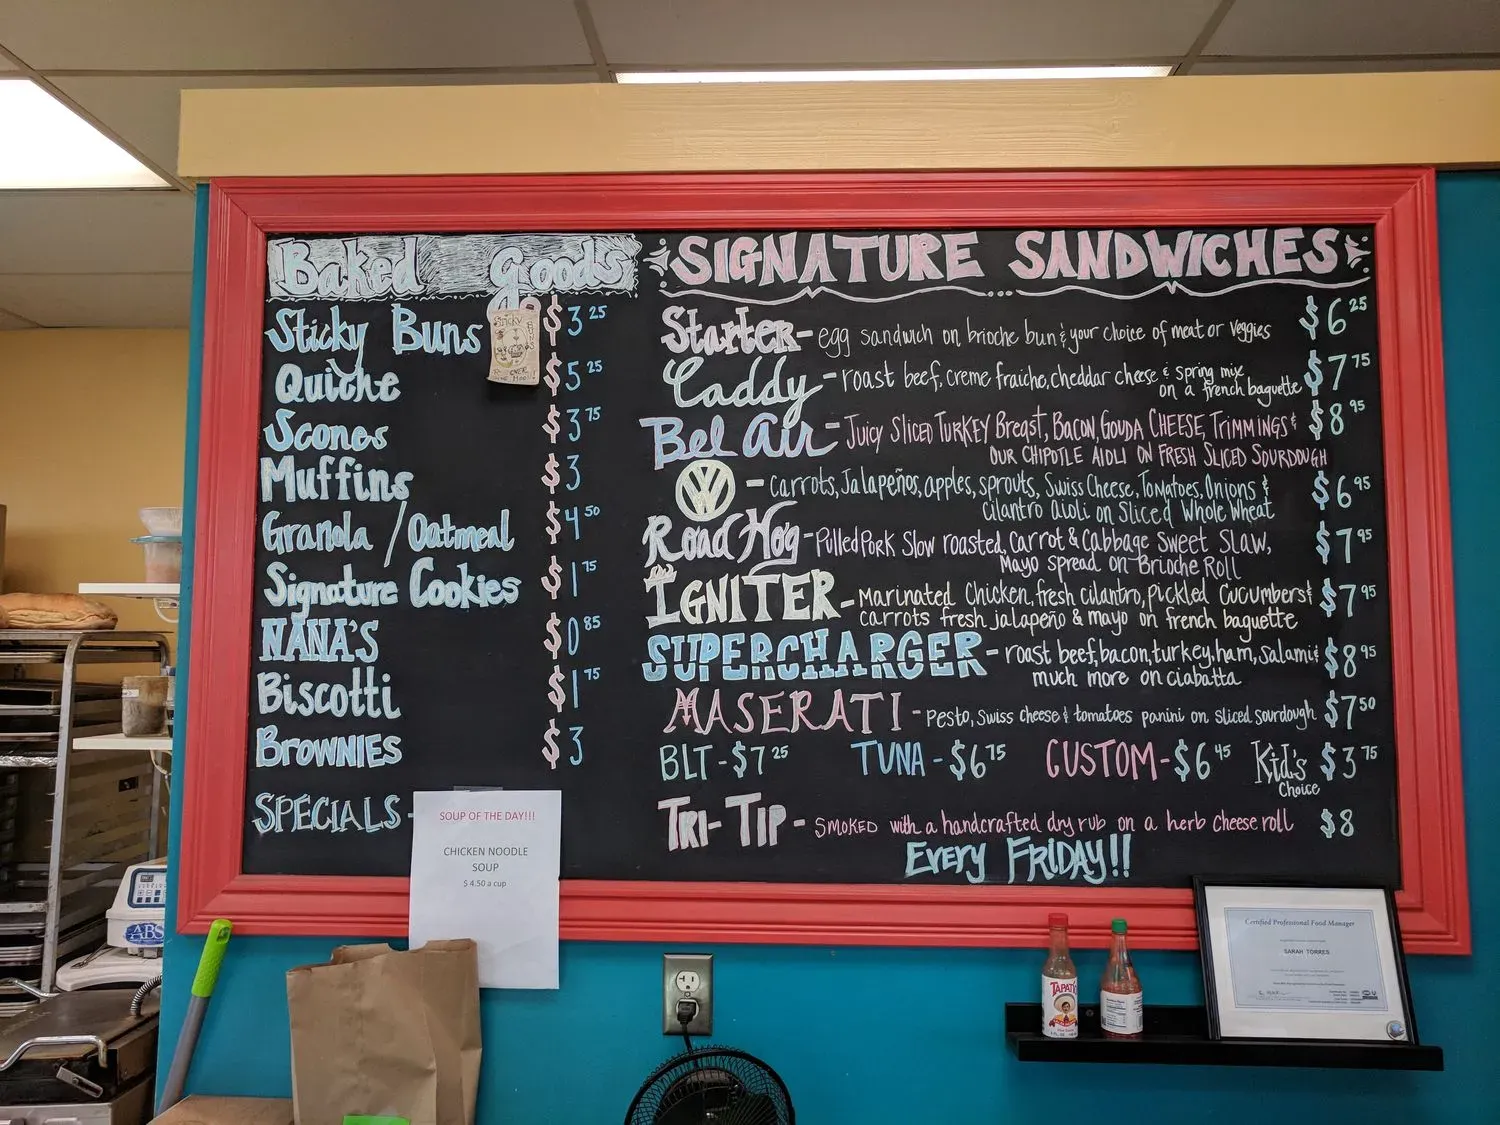 Baked Goods
Sticky Buns $3.25
Quiche $5.25
Scones $3.75
Muffins $3
Granola / Oatmeal $4.50
Signature Cookies $1.75
NANA'S $0.85
Biscotti $1.75
BROWNIES $3
SPECIALS -
SOUP OF THE DAY!!!
CHICKEN NOODLE
SOUP
$ 4.50 a cup
SIGNATURE SANDWICHES
Starter - egg sandwich on brioche bun & your choice of meat or veggies $6.25
Caddy - roast beef, creme fraiche, cheddar cheese & spring mix
on a french baguette $7.75
Bel Air - Juicy Sliced Turkey Breast, Bacon, Gouda Cheese, Trimmings &
our chipotle aioli on fresh sliced sourdough $8.95
VW - carrots, Jalapeños, apples, sprouts, Swiss Cheese, Tomatoes, Onions &
cilantro aioli on Sliced Whole Wheat $6.95
Road Hog - Pulled Pork Slow roasted, Carrot & Cabbage Sweet Slaw,
Mayo spread on Brioche Roll $7.95
IGNITER - Marinated Chicken, fresh cilantro, pickled cucumbers &
carrots fresh jalapeño & mayo on french baguette $7.95
SUPERCHARGER - roast beef, bacon, turkey, ham, salami &
much more on ciabatta $8.95
MASERATI - pesto, swiss cheese & tomatoes panini on sliced sourdough $7.50
BLT - $7.25 TUNA - $6.75 CUSTOM - $6.45 Kid's Choice $3.75
TRI-TIP - Smoked with a handcrafted dry rub on a herb cheese roll $8
Every FRIDAY!!
Certified Professional Food Manager
SARAH TORRES
TAPATIO
ABS